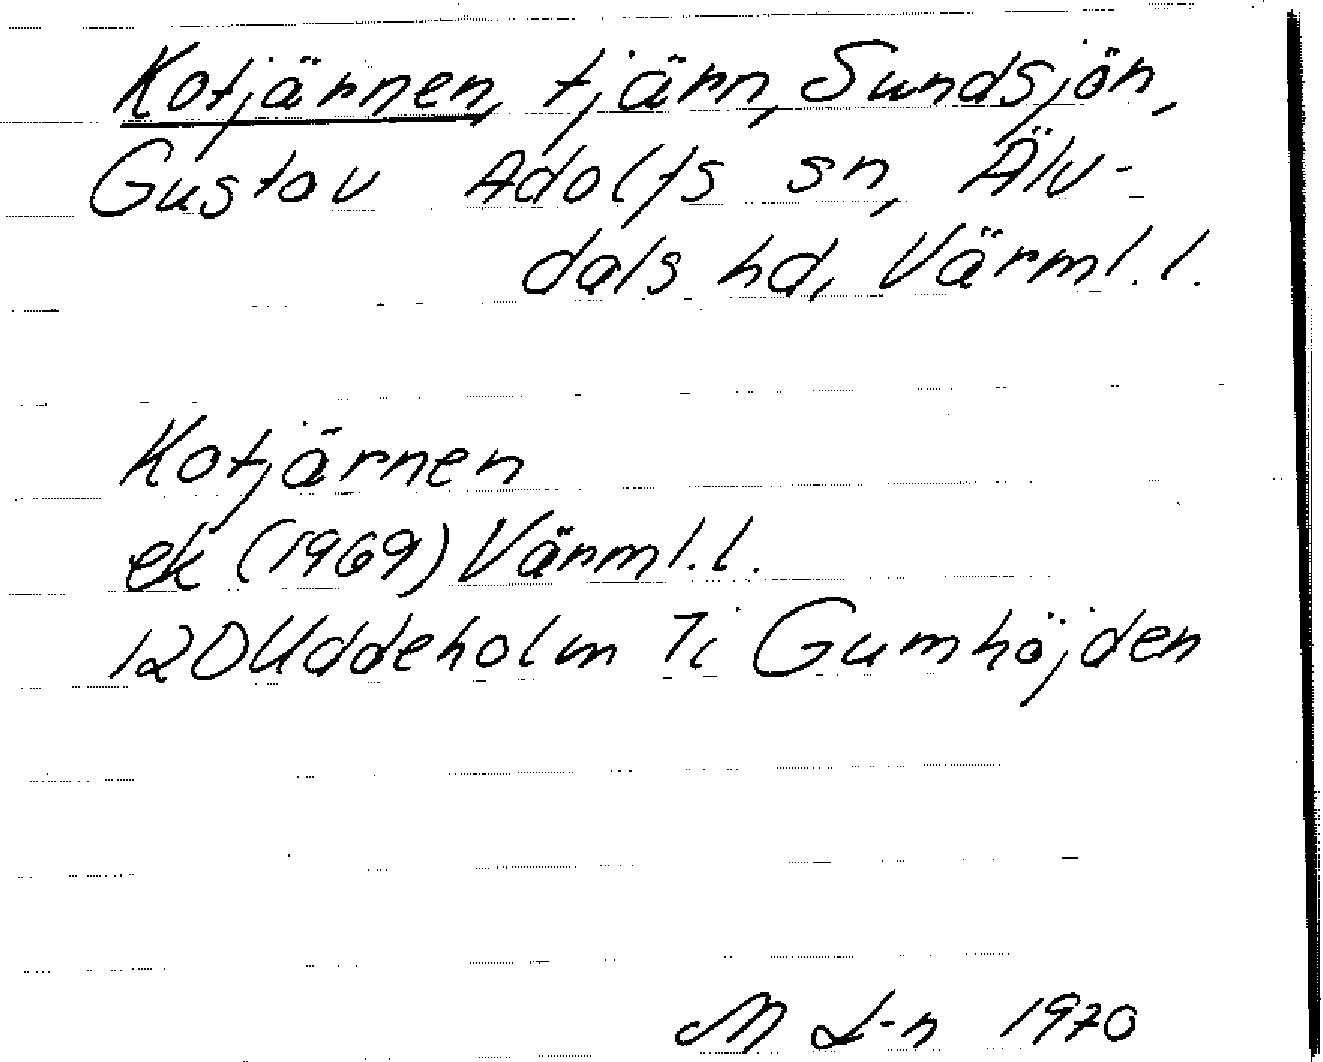 Kotjärnen, tjärn, Sundsjön,
Gustav Adolfs sn, Älv-
dals hd, Värml. l.
Kotjärnen
ek (1969) Värml. l.
12D Uddeholm 7i Gumhöjden
M L-n 1970